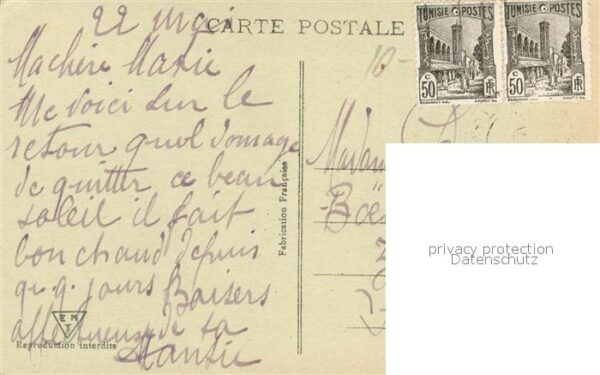 22 mai
CARTE POSTALE
TUNISIE POSTES
TUNISIE POSTES
50 C
RF
50 C
RF
Ma chère Marie
Me voici sur le
retour quel domage
de quitter ce beau
soleil il fait
bon chaud depuis
qq. jours Baisers
affectueux de ta
Fabrication Française
EMT
Reproduction interdite
Madam
Boës
privacy protection
Datenschutz